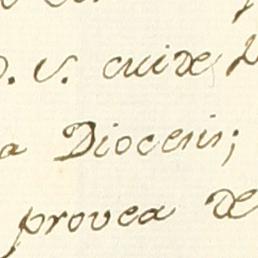 D. V. cuide
a Diocesis;
provea de